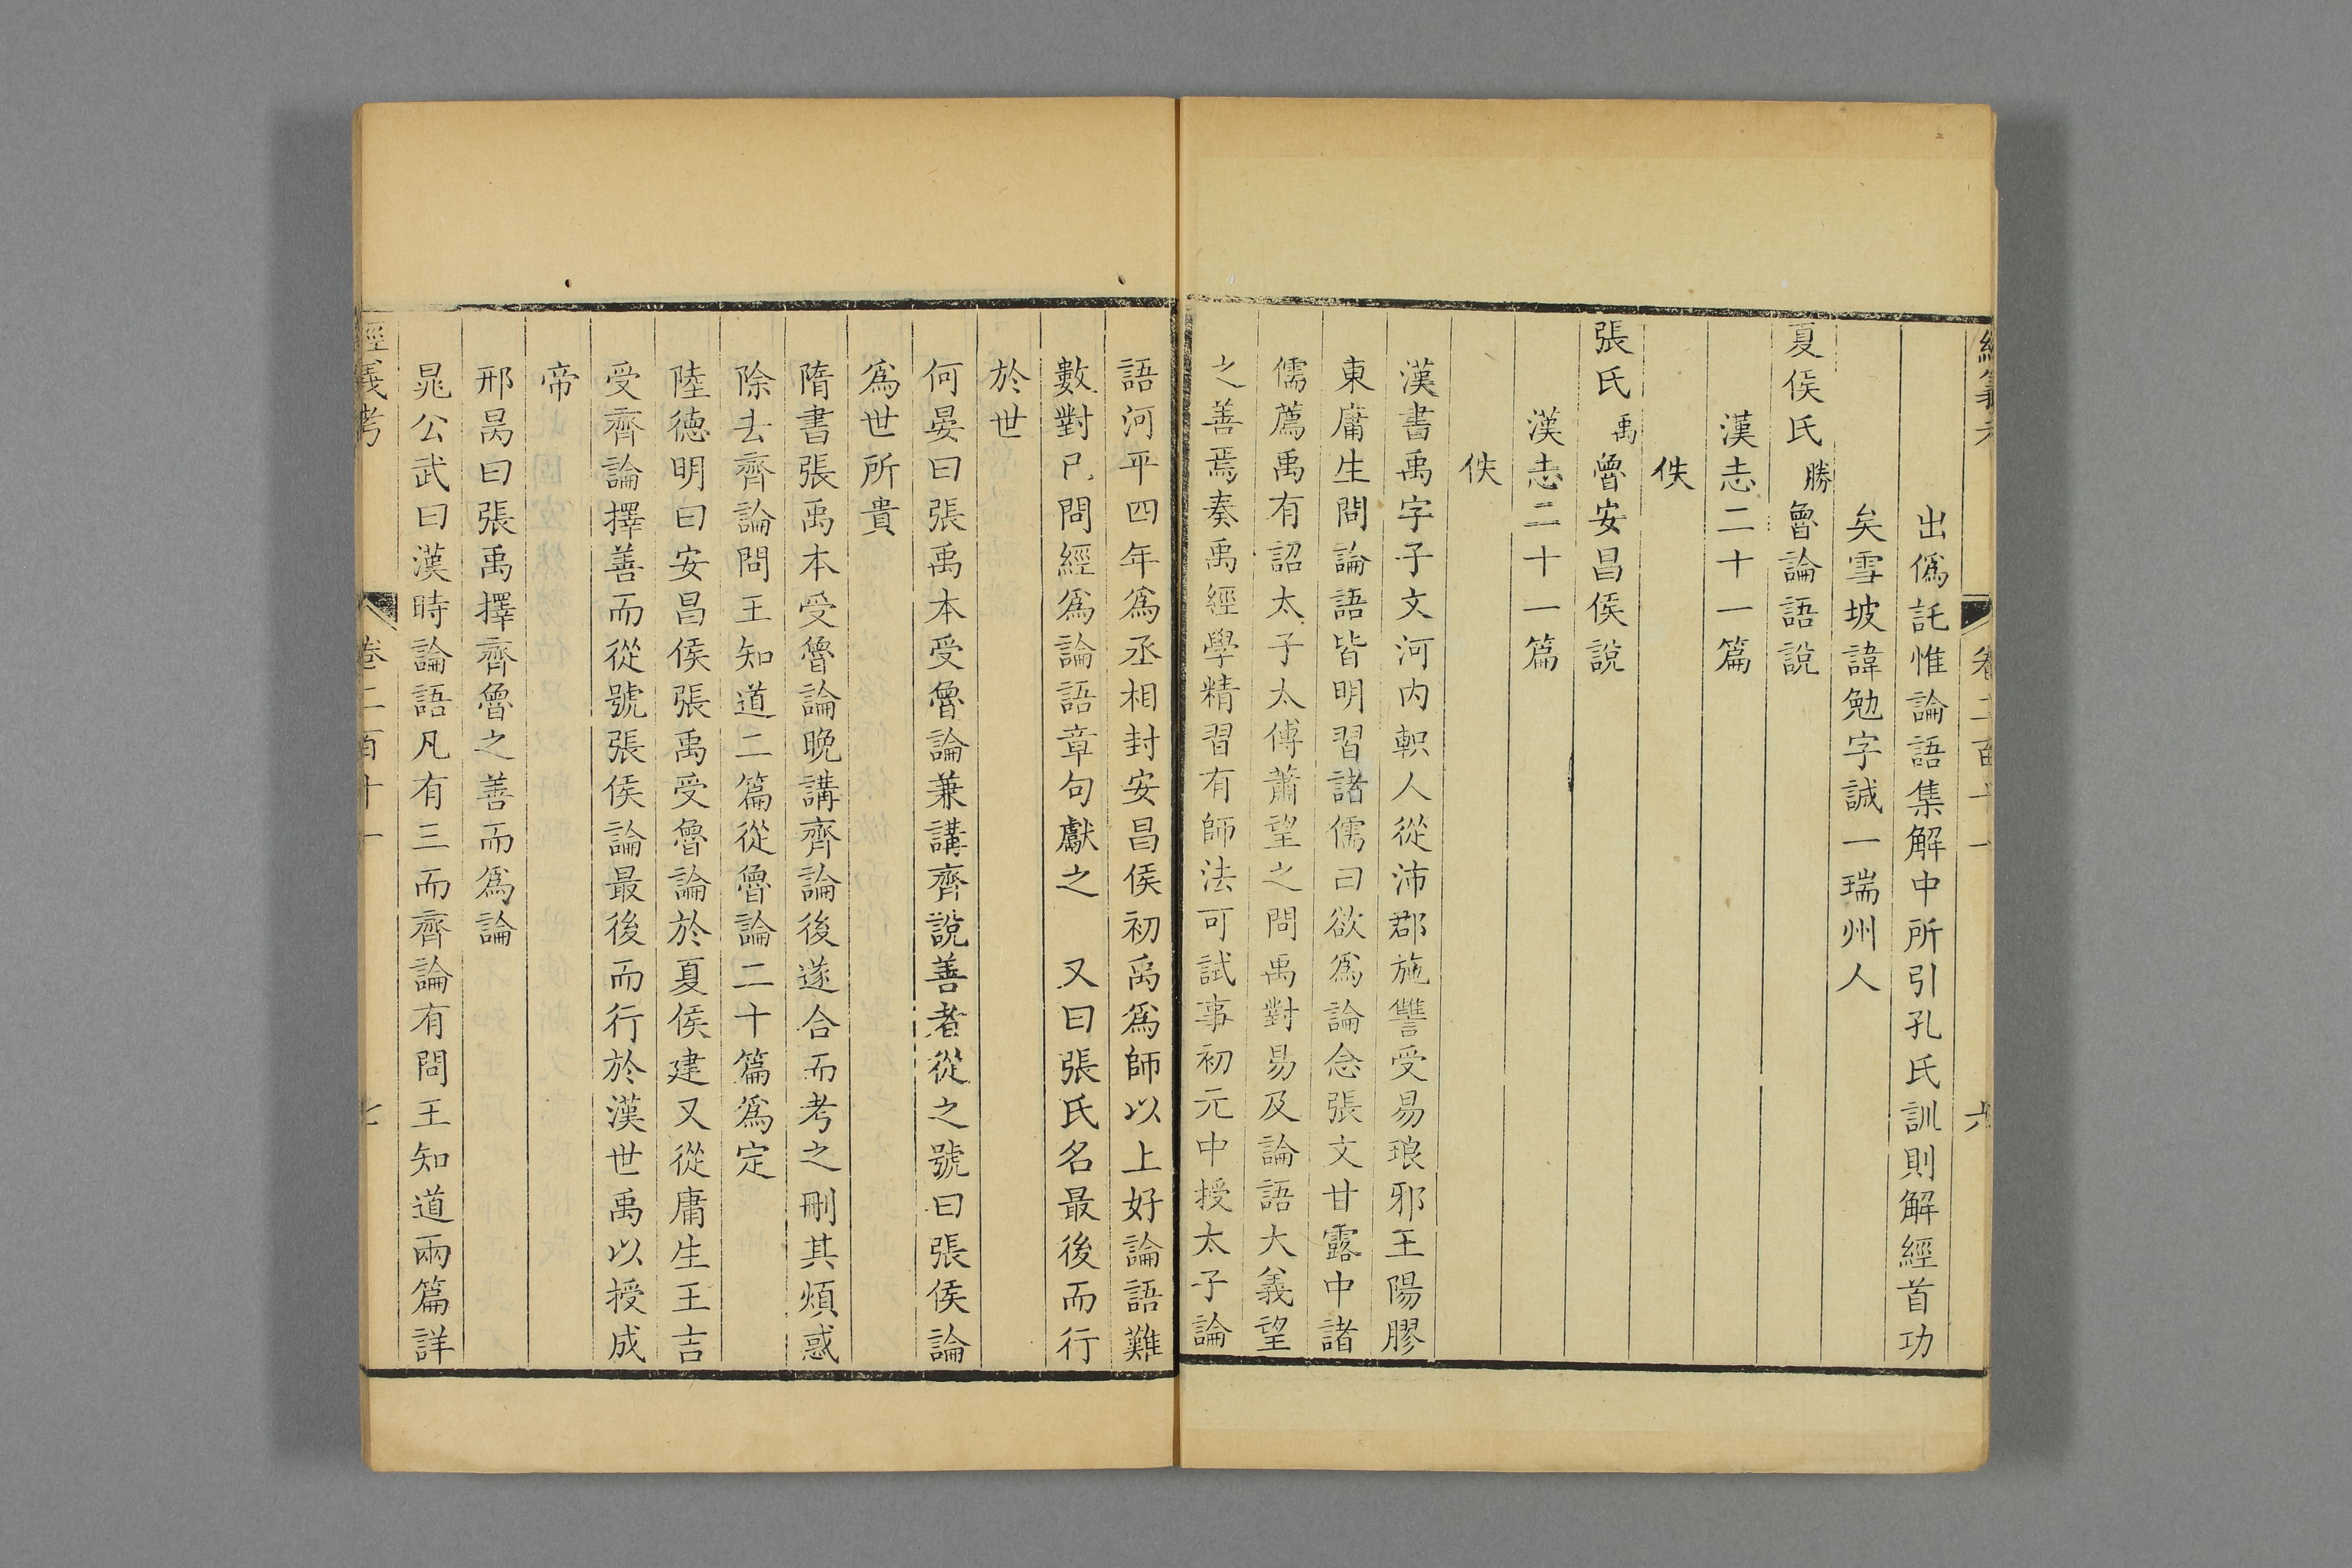 經義考　卷二百十一　六
出僞託惟論語集解中所引孔氏訓則解經首功
矣雪坡諱勉字誠一瑞州人
夏侯氏勝魯論語說
漢志二十一篇
佚
張氏禹魯安昌侯說
漢志二十一篇
佚
漢書禹字子文河内軹人從沛郡施讐受易琅邪王陽膠
東庸生問論語皆明習諸儒曰欲爲論念張文甘露中諸
儒薦禹有詔太子太傅蕭望之問禹對易及論語大義望
之善焉奏禹經學精習有師法可試事初元中授太子論
語河平四年爲丞相封安昌侯初禹爲師以上好論語難
數對已問經爲論語章句獻之　又曰張氏名最後而行
於世
何晏曰張禹本受魯論兼講齊說善者從之號曰張侯論
爲世所貴
隋書張禹本受魯論晚講齊論後遂合而考之刪其煩惑
除去齊論問王知道二篇從魯論二十篇爲定
陸德明曰安昌侯張禹受魯論於夏侯建又從庸生王吉
受齊論擇善而從號張侯論最後而行於漢世禹以授成
帝
邢昺曰張禹擇齊魯之善而爲論
晁公武曰漢時論語凡有三而齊論有問王知道兩篇詳
經義考　卷二百十一　七